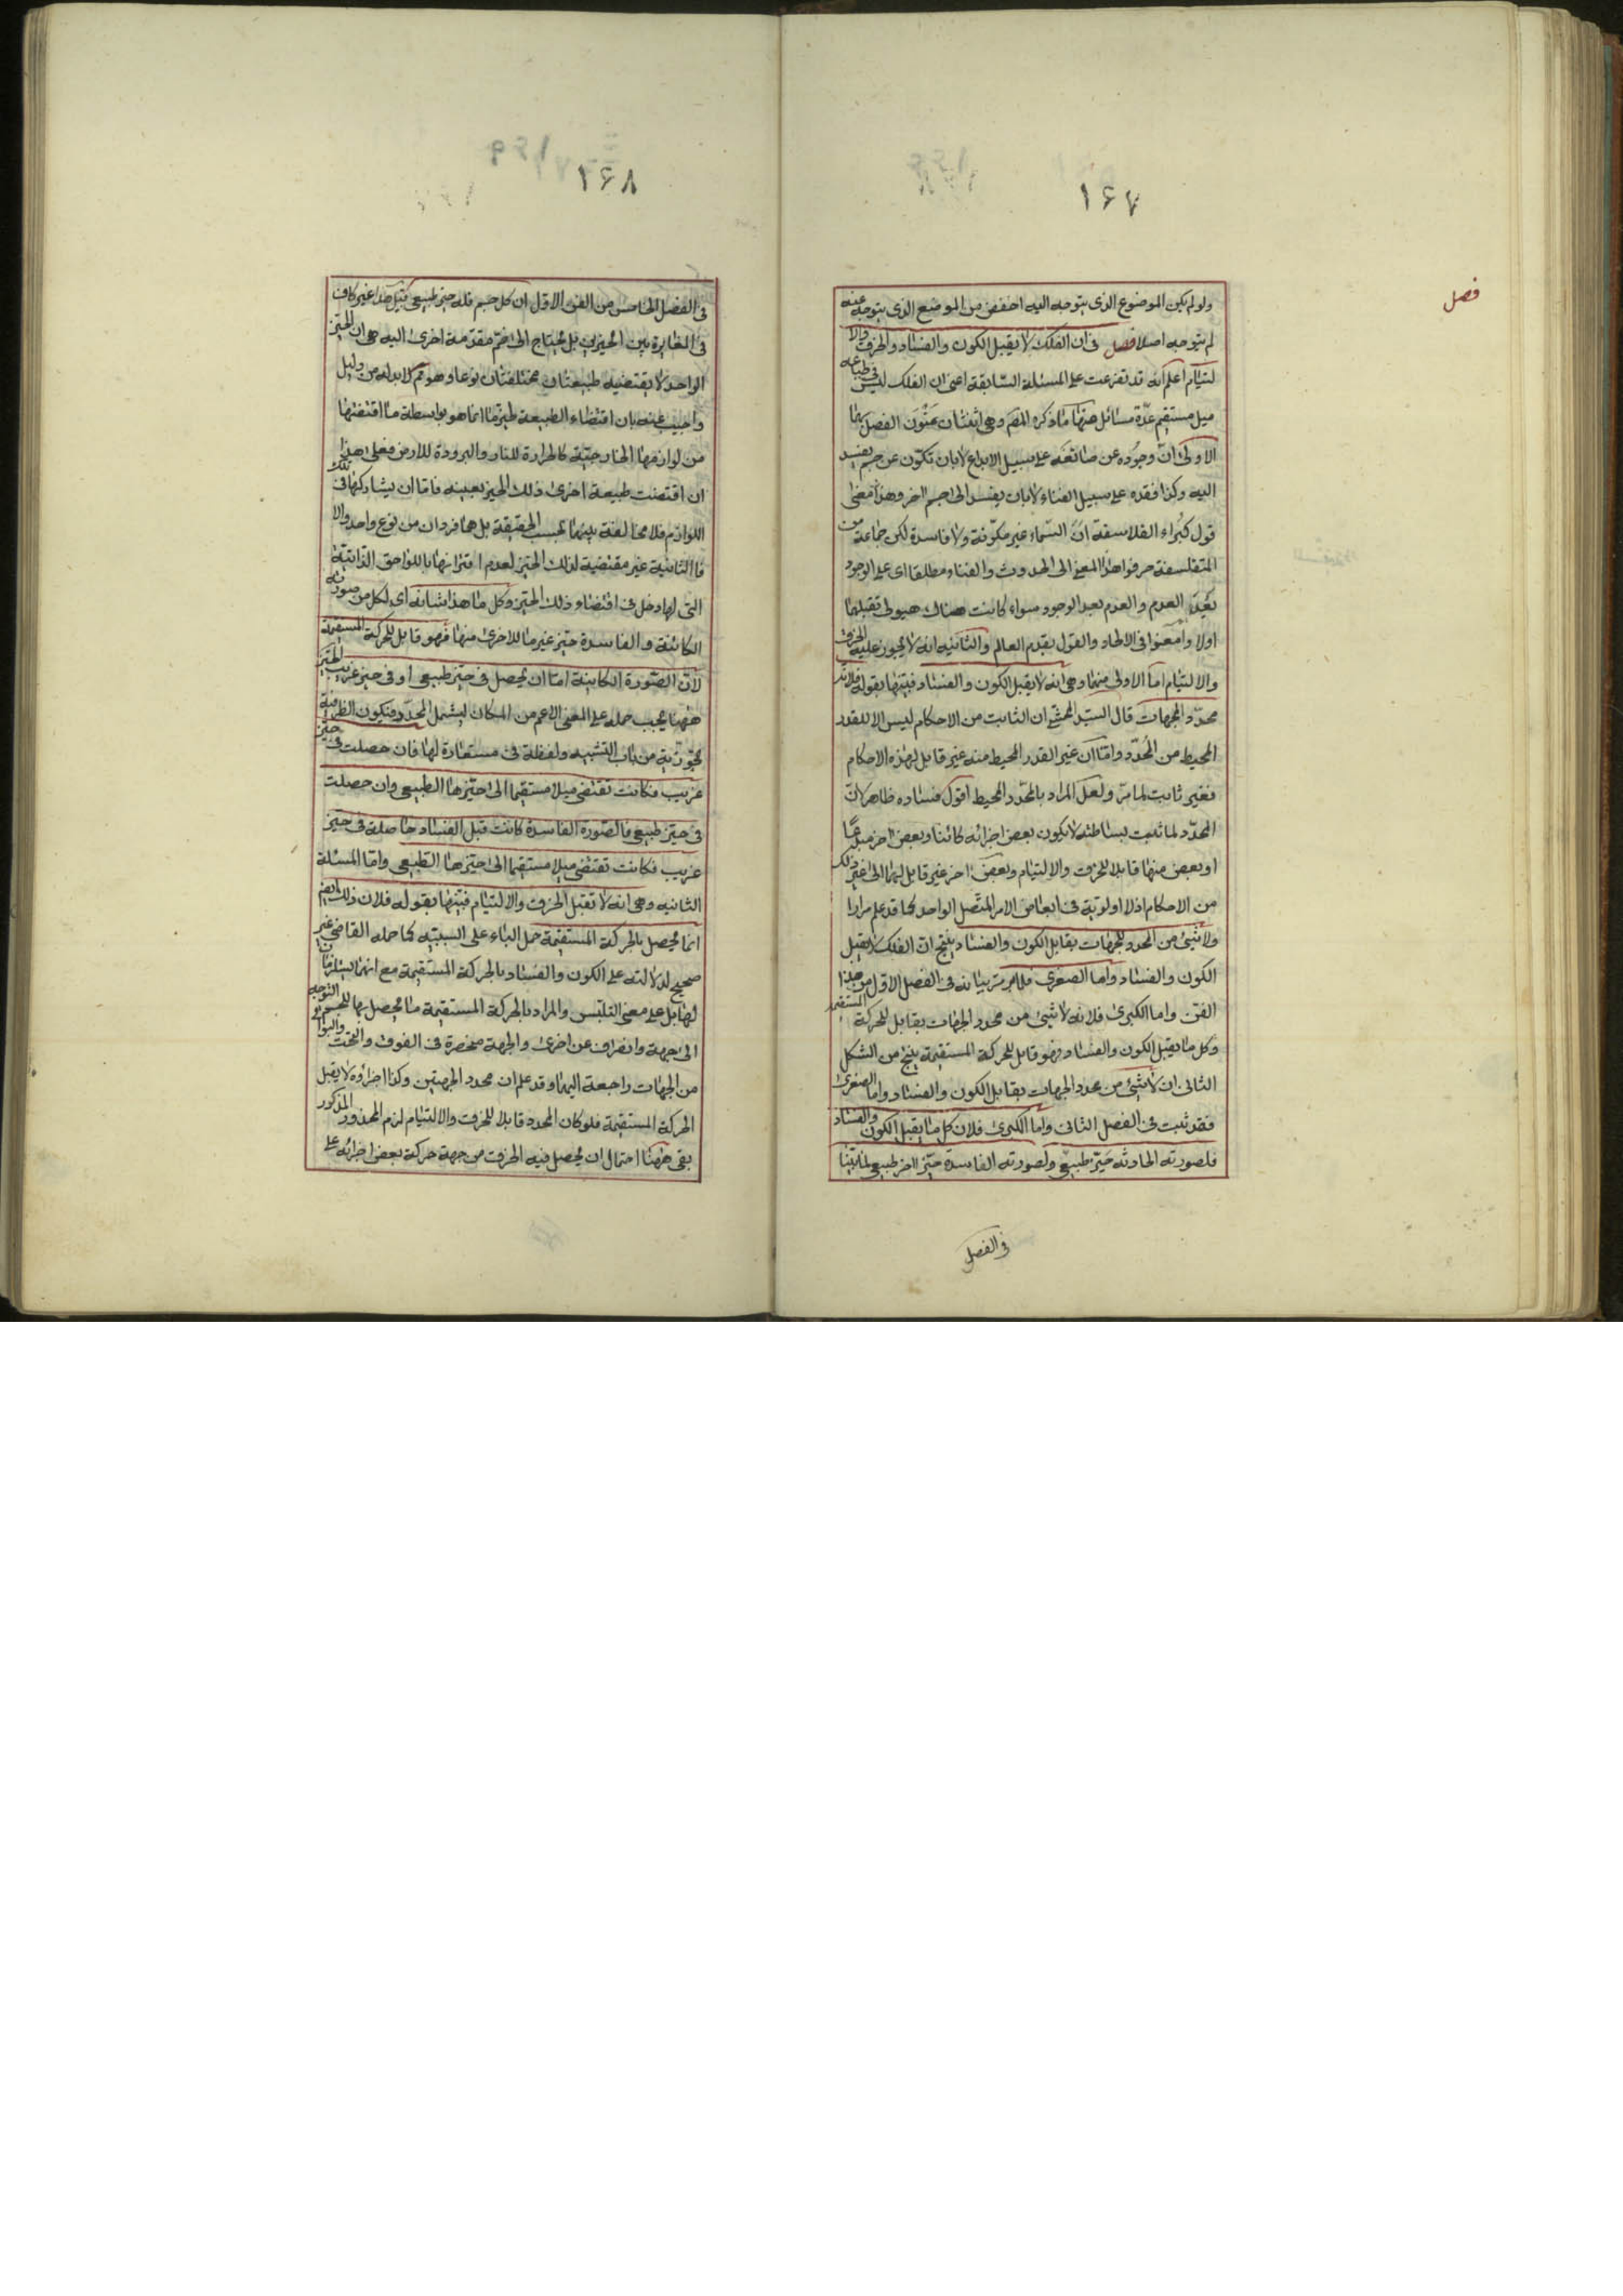 ١۶٧
فصل
ولو لم يكن الموضوع الذى يتوجه اليه اخفض من الموضع الذى يتوجه عنه
لم يتوجه اصلا فصل فى ان الفلك لا يقبل الكون والفساد والخرق والا
لتيام اعلم انه قد تفرعت على المسئلة السابقة اعنى ان الفلك ليس فى طباعه
ميل مستقيم عدة مسائل منها ما ذكره المصَ وهى اثنتان عَنْوَن الفصل بهما
الاولى انّ وجوده عن صانعه على سبيل الابداع لا بان تكوّن عن جسم يفسد
اليه وكذا فقده على سبيل الفناء لا بان يفسد الى جسم اخر وهذا معنى
قول كبراء الفلاسفة انّ السماء غير مكوّنة ولا فاسدة لكن جماعة من
المتفلسفة حرفوا هذا المعنى الى الحدوث والفناء مطلقا اى على الوجود
بَعْدَ العدم والعدم بعد الوجود سواء كانت هناك هيولى تقبلهما
اولا وامعنوا فى الالحاد والقول بقدم العالم والثانية انه لا يجوز عليه الخرق
والالتيام اما الاولى منهما وهى انه لا يقبل الكون والفساد فبيّنها بقوله فلانه
محدّد الجهات قال السيّد المحشى ان الثابت من الاحكام ليس الا للقدر
المحيط من المُحدّد وامّا ان غير القدر المحيط منه غير قابل لهذه الاحكام
فغير ثابت لما مرّ ولعل المراد بالمحدّد المحيط اقول فساده ظاهر لانّ
المحدّد لما ثبت بساطته لا يكون بعض اجزائه كائنا وبعض اخر مبدعًا
او بعض منها قابلا للخرق والالتيام وبعض اخر غير قابل لهما الى غير ذلك
من الاحكام اذ لا اولوية فى ابعاض الامر المتّصل الواحد كما قد علم مرارا
ولا شئ من المحدد للجهات بقابل الكون والفساد ينتج ان الفلك لا يقبل
الكون والفساد واما الصغرى فلما مر بيانه فى الفصل الاول من هذا
الفن واما الكبرى فلانه لا شئ من محدد الجهات بقابل للحركة المستقيمة
وكل ما يقبل الكون والفساد فهو قابل للحركة المستقيمة ينتج من الشكل
الثانى ان لا شئ من محدد الجهات بقابل الكون والفساد واما الصغرى
فقد ثبت فى الفصل الثانى واما الكبرى فلان كل ما يقبل الكون والفساد
فلصورته الحادثه حيّز طبيعى ولصورته الفاسدة حيّز اخر طبيعى لما بينا
فى الفصل
١۶٨
فى الفصل الخامس من الفن الاول ان كل جسم فله حيز طبيعى قيل هذا غير كاف
فى المغايرة بين الحيزين بل يحتاج الى ضمّ مقدّمة اخرى اليه هى ان الحيّز
الواحد لا يقتضيه طبيعتان مختلفتان نوعا وهو مم لا بد له من دليل
واجيب عنه بان اقتضاء الطبيعة لحيّز ما انما هو بواسطة ما اقتضتها
من لوازمها الخارجيّة كالحرارة للنار والبرودة للارض فعلى هذا
ان اقتضت طبيعة اخرى ذلك الحيز بعينه فاما ان يشاركها فى تلك
اللوازم فلا مخالفة بينهما بحسب الحقيقة بل هما فردان من نوع واحد والا
فالثانية غير مقتضية لذلك الحيّز لعدم اقترانها باللواحق الذاتيّة
التى لها دخل فى اقتضاء ذلك الحيّز وكل ما هذا شانه اى لكل من صورته
الكائنة والفاسدة حيّز غير ما للاخرى منهما فهو قابل للحركة المستقيمة
لانّ الصّورة الكاينة امّا ان يحصل فى حيّز طبيعى او فى حيز غريب الحيّز
ههنا يجب حمله على المعنى الاعم من المكان ليشمل المحدّد فتكون الظرفية
تجوّزية من باب التشبيه ولفظة فى مستعارة لها فان حصلت فى حيّز
غريب فكانت تقتضى ميلا مستقيما الى حيّزها الطبيعى وان حصلت
فى حيّز طبيعى فالصّورة الفاسدة كانت قبل الفساد حاصلة فى حيز
غريب فكانت تقتضى ميلا مستقيما الى حيّزها الطبيعى وامّا المسئلة
الثانيه وهى انه لا تقبل الخرق والالتيام فبيّنها بقوله فلان ذلك ايض
انما يحصل بالحركة المستقيمة حمل الباء على السببيّه كما حمله القاضى غير
صحيح لدلالته على الكون والفساد بالحركة المستقيمة مع انهما يستلزمان
لها بل على معنى التلبّس والمراد بالحركة المستقيمة ما يحصل بها للجسم التوجه
الى جهة وانصراف عن اخرى والجهة منحصرة فى الفوق والتحت والبواقى
من الجهات راجعة اليهما وقد علم ان محدد الجهتين وكذا اجزاؤه لا يقبل
الحركة المستقيمة فلو كان المحدد قابلا للخرق والالتيام لزم المحذور المذكور
بقى ههنا احتمال ان يحصل فيه الخرق من جهة حركة بعض اجزائه على